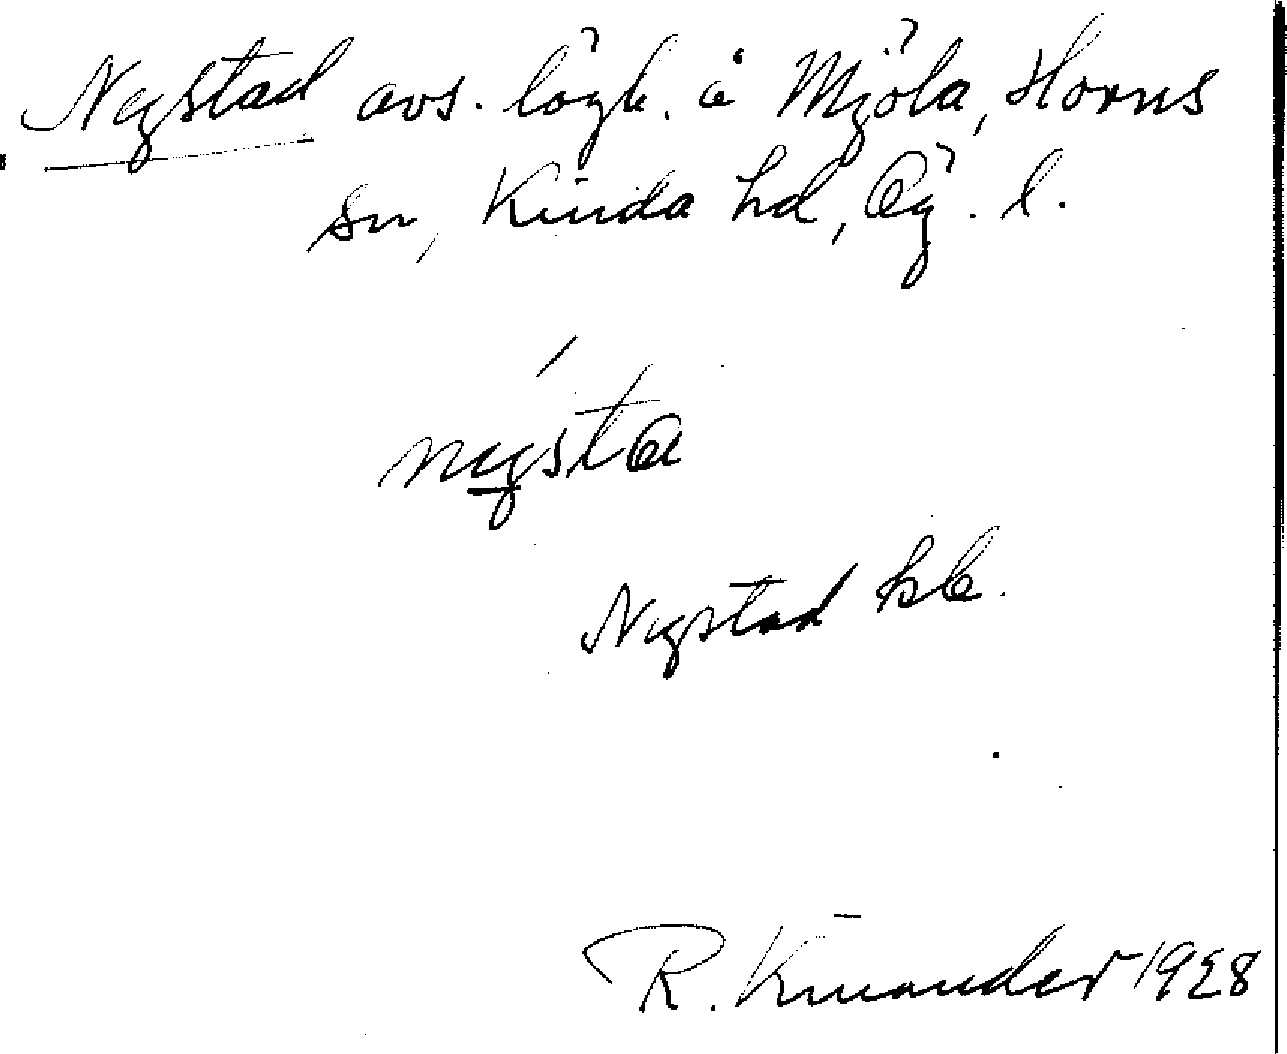 Nystad avs. lägh. å Mjöla, Horns
sn, Kinda hd, Ög. l.
nysta
Nystad hsb.
R. Kinander 1928